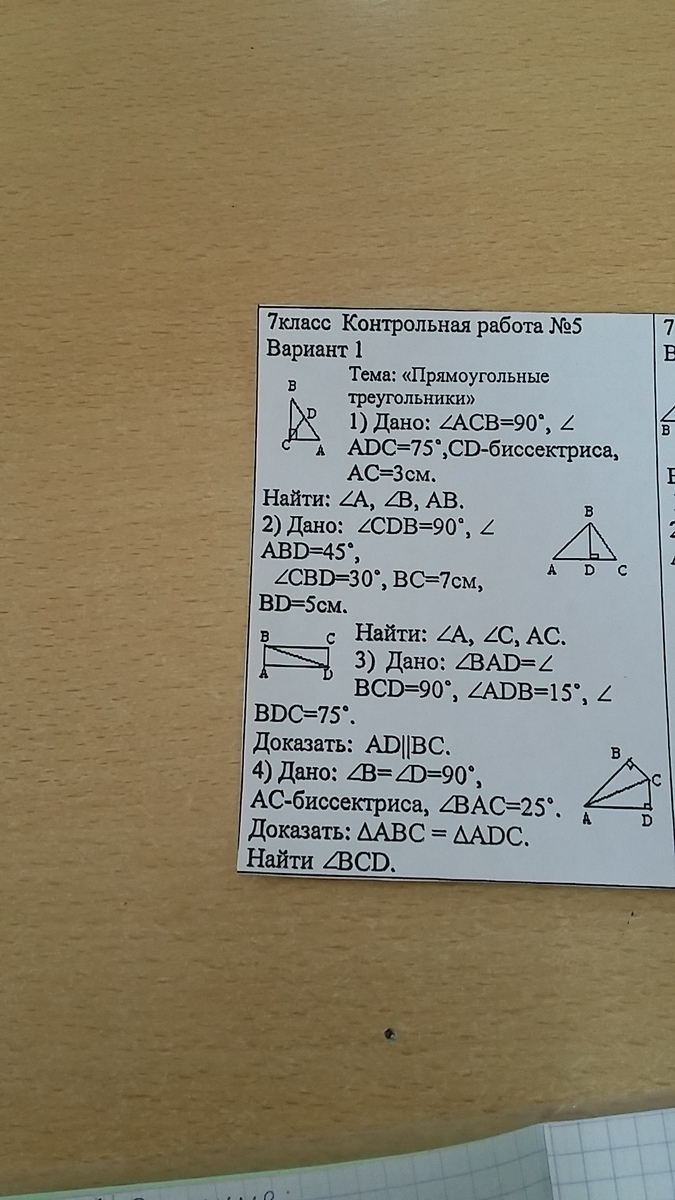 7класс Контрольная работа №5
Вариант 1
Тема: «Прямоугольные
треугольники»
1) Дано: ∠ACB=90°, ∠
ADC=75°,CD-биссектриса,
AC=3см.
Найти: ∠A, ∠B, AB.
B
D
C
A
2) Дано: ∠CDB=90°, ∠
ABD=45°,
∠CBD=30°, BC=7см,
BD=5см.
Найти: ∠A, ∠C, AC.
B
A D C
3) Дано: ∠BAD=∠
BCD=90°, ∠ADB=15°, ∠
BDC=75°.
Доказать: AD||BC.
B C
A D
4) Дано: ∠B=∠D=90°,
AC-биссектриса, ∠BAC=25°.
Доказать: ΔABC = ΔADC.
Найти ∠BCD.
B
C
A D
7
B